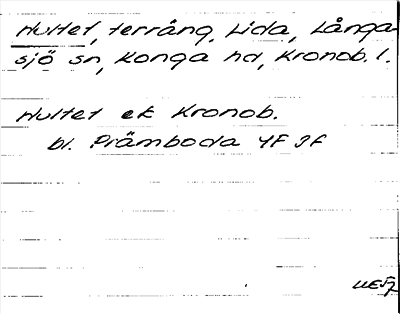 Hultet, terräng, Lida, Långa-
sjö sn, Konga hd, Kronob. l.
Hultet ek Kronob.
bl. Prämboda 4F 9f